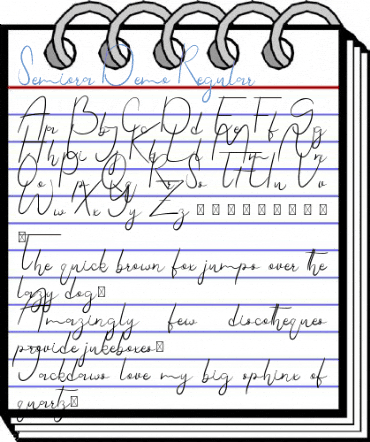 Semiora Demo Regular
Aa Bb Cc Dd Ee Ff Gg
Hh Ii Jj Kk Ll Mm Nn
Oo Pp Qq Rr Ss Tt Uu Vv
Ww Xx Yy Zz
The quick brown fox jumps over the
lazy dog
Amazingly few discotheques
provide jukeboxes
Jackdaws love my big sphinx of
quartz